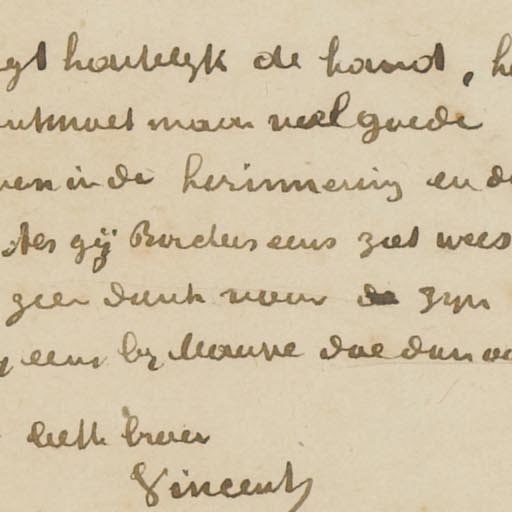 hartelijk de hand, h
ontmoet maar veel goede
in de herinnering en d
Als gij Borchers eens ziet wees
zeer dank voor de zijn
eens bij Mauve doe dan oo
liefh broer
Vincent